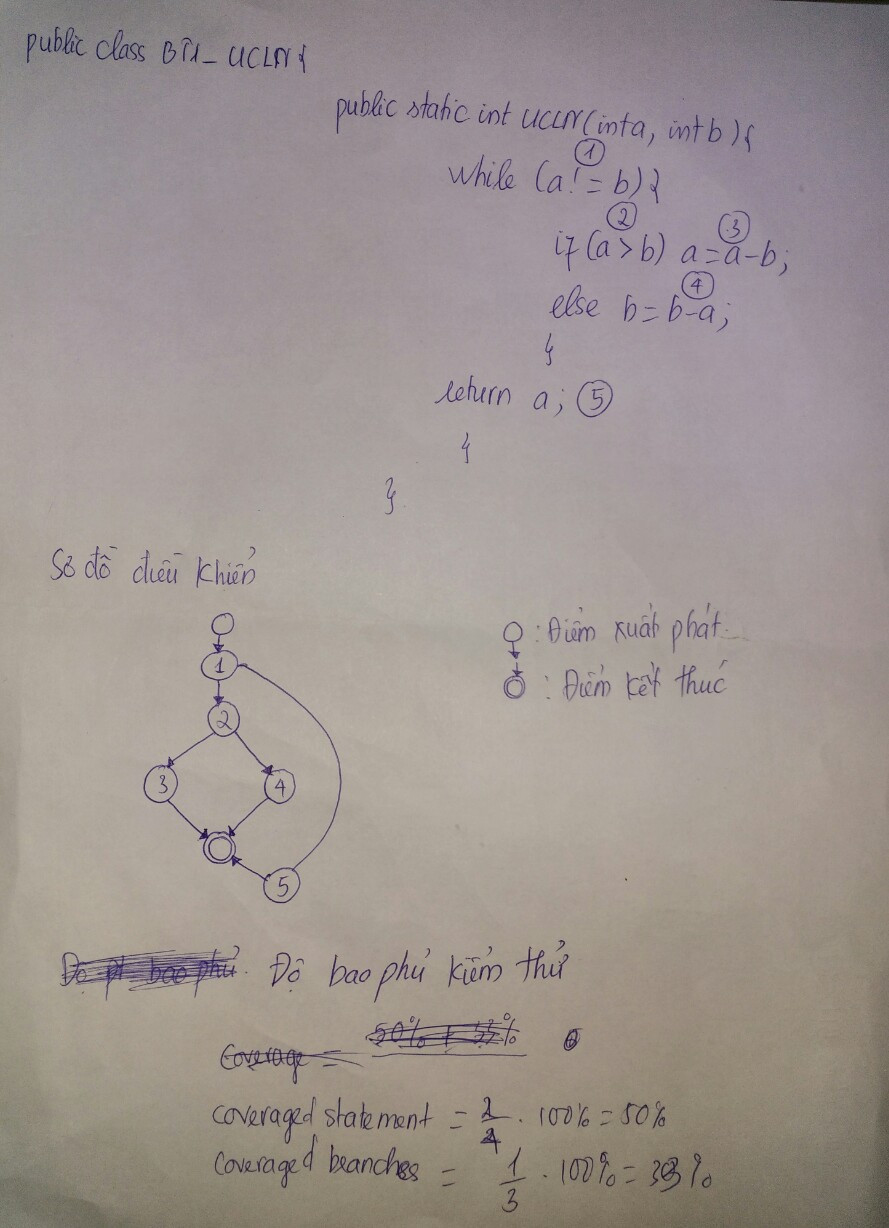 public class BT1_UCLN{
public static int UCLN(int a, int b){
①
while (a != b){
② ③
if (a > b) a = a - b;
④
else b = b - a;
}
return a; ⑤
}
}
Sơ đồ điều khiển
1
2
3 4
5
○ : Điểm xuất phát
◎ : Điểm kết thúc
Độ bao phủ kiểm thử
50% + 33%
Coverage =
coveraged statement = 2/4 . 100% = 50%
coveraged branches = 1/3 . 100% = 33%